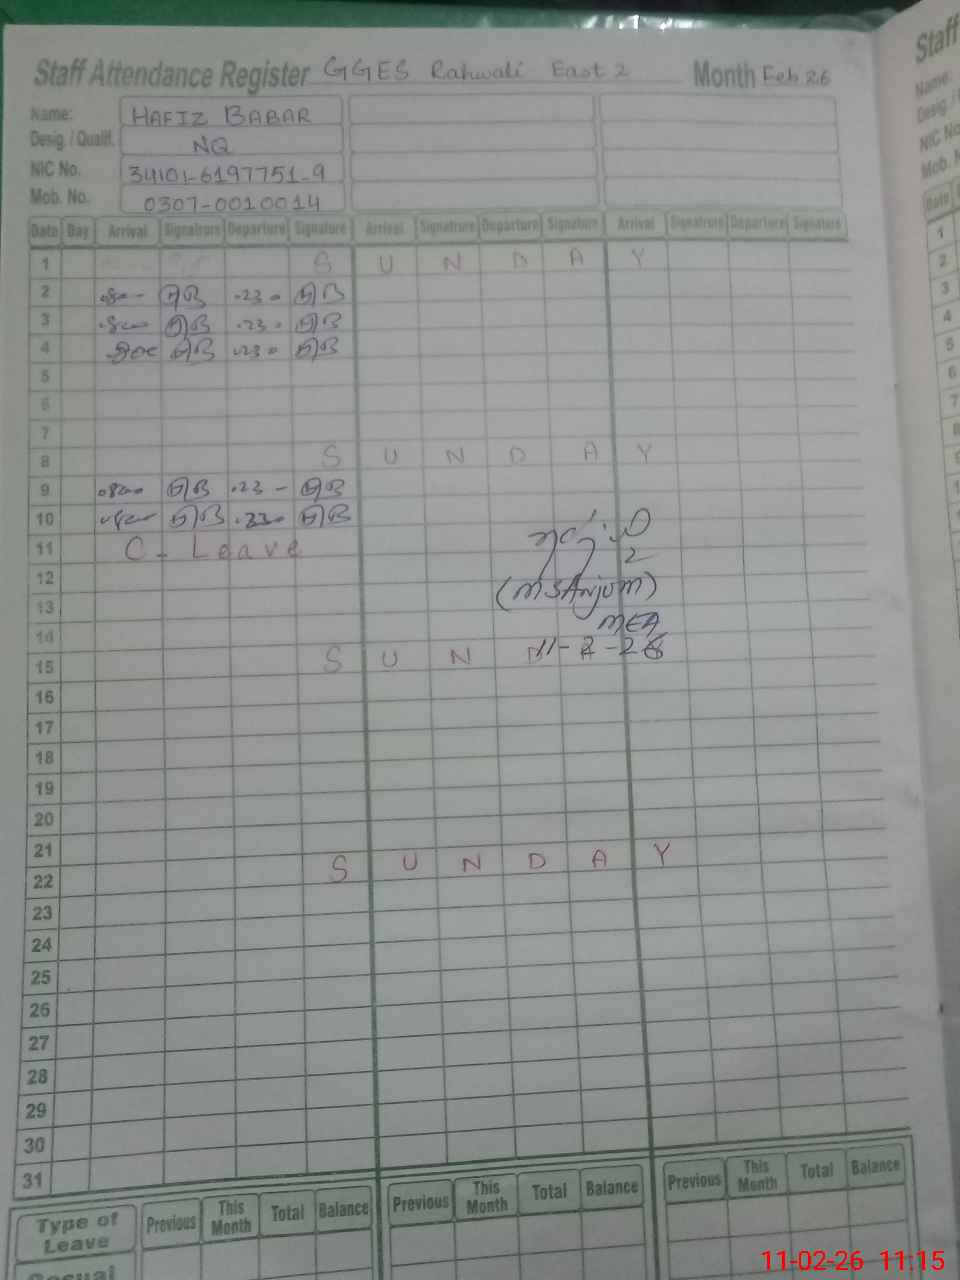 Staff Attendance Register GGES Rahwali East 2 Month Feb 26
Name: HAFIZ BABAR
Desig. / Qualif. NQ
NIC No. 34101-6197751-9
Mob. No. 0307-0010014
Date Day Arrival Signatrure Departure Signature Arrival Signatrure Departure Signature Arrival Signatrure Departure Signature
1 S U N D A Y
2
3
4
5
6
7
8 S U N D A Y
9
10
11 C - Leave
12 (MSAnjum)
13 MEA
14 11-2-26
15 S U N D A Y
16
17
18
19
20
21
22 S U N D A Y
23
24
25
26
27
28
29
30
31
Type of Leave Previous This Month Total Balance Previous This Month Total Balance Previous This Month Total Balance
Casual
Staff
Name:
Desig. /
NIC No
Mob. N
Date
1
2
3
4
5
6
7
8
9
11-02-26 11:15